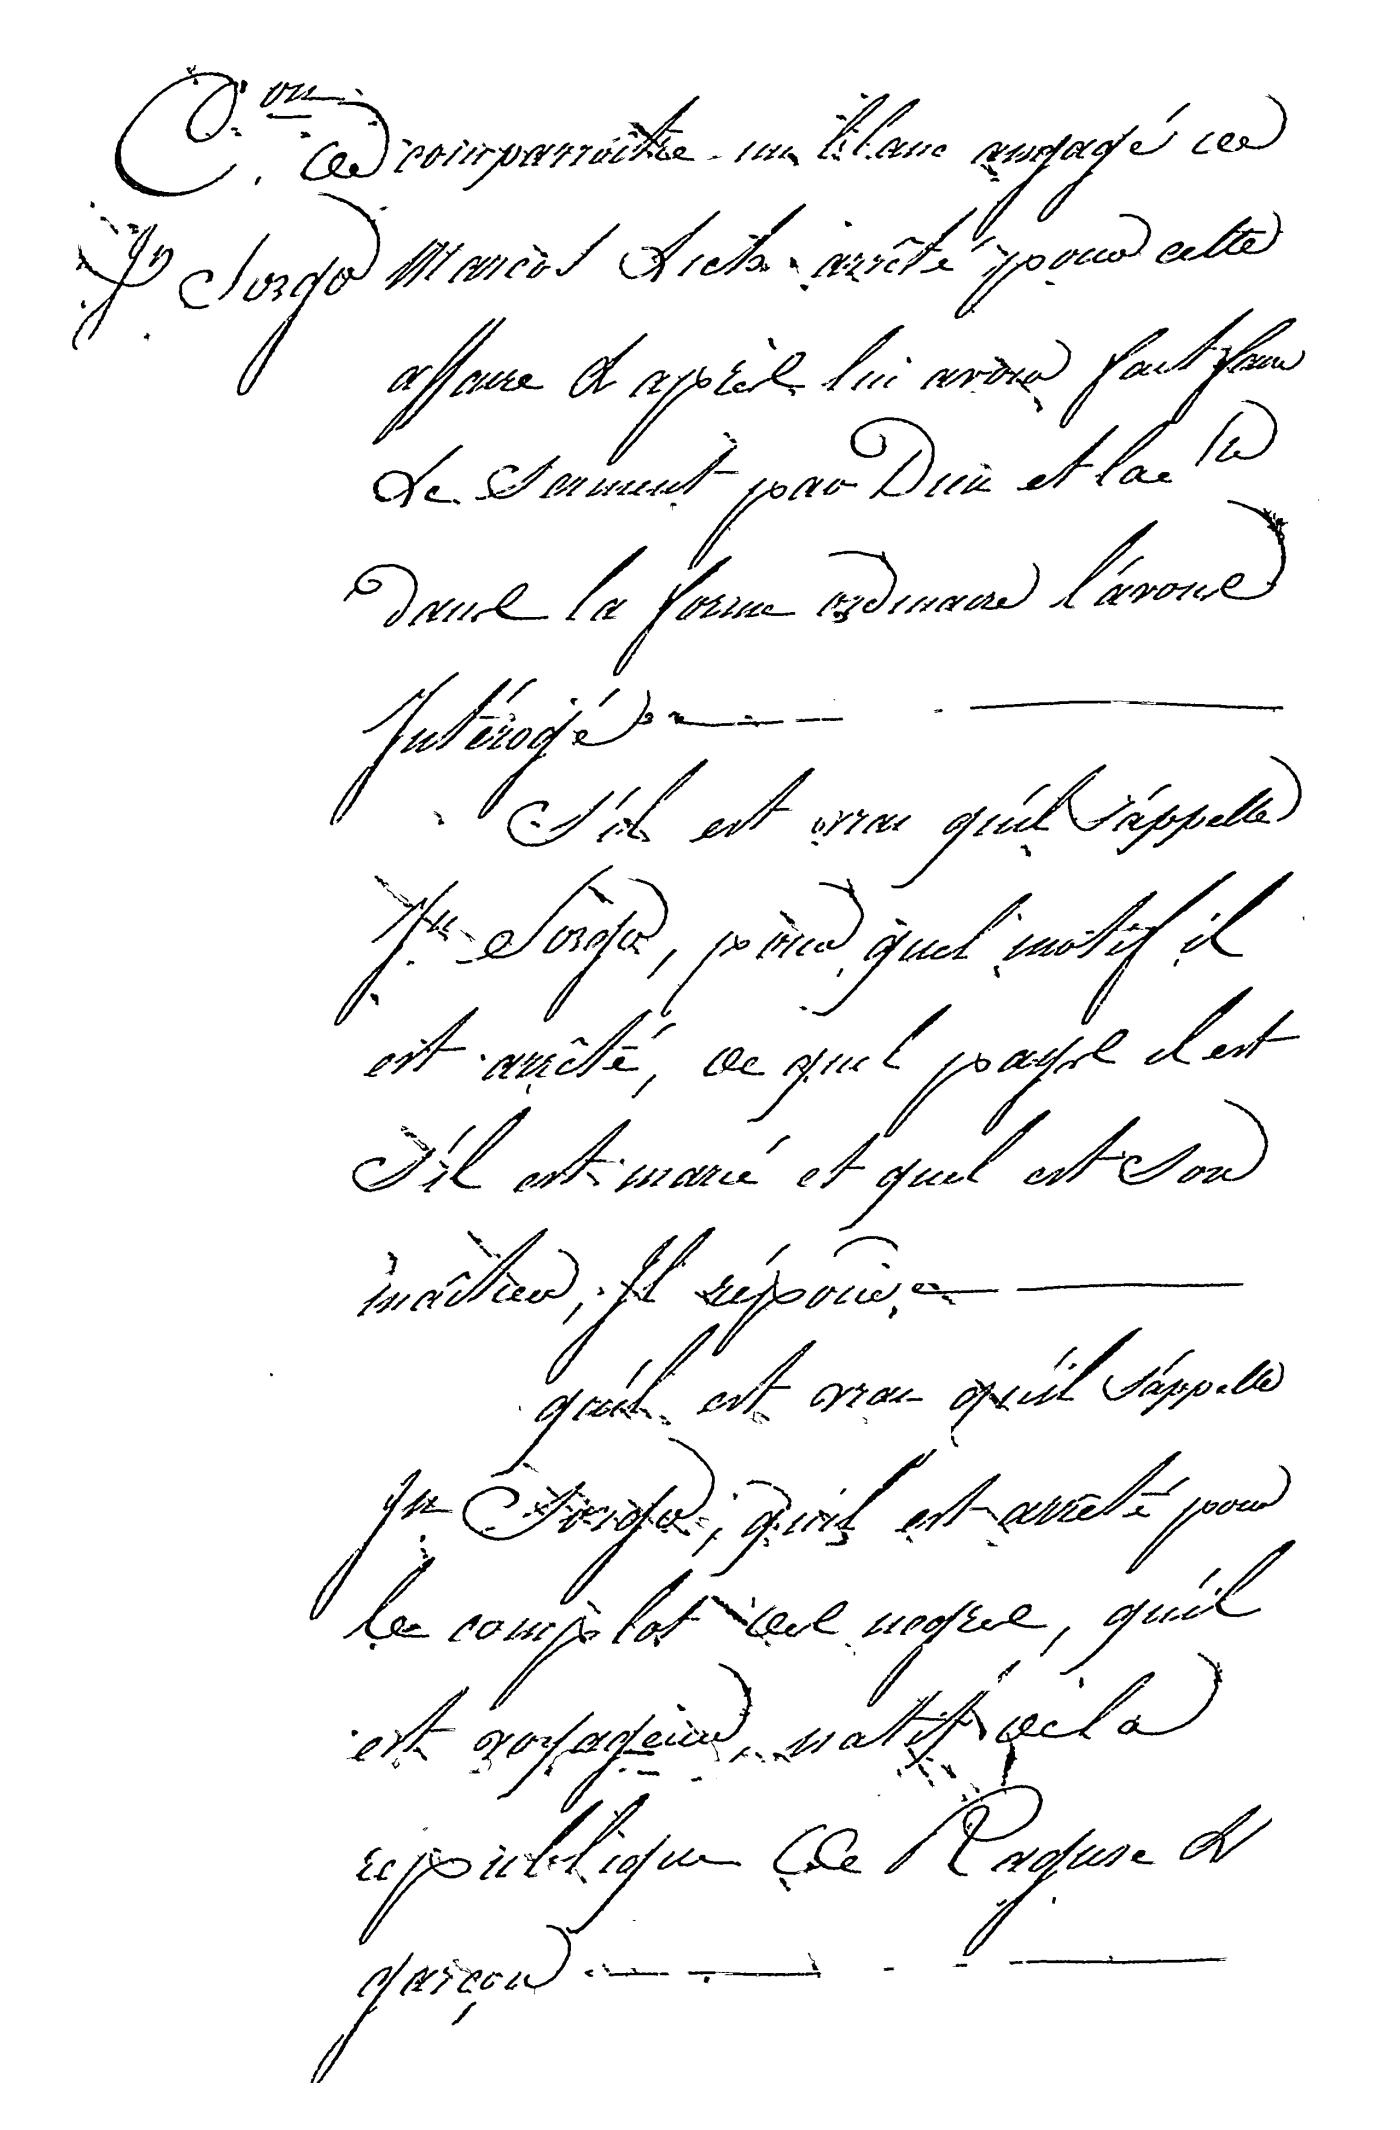 C.on de comparroitre un blanc angagé de
Jn Sorgo Marcos Leils arrêté pour cette
affaire & aprés lui avoir fait faire
Le Serment par Dieu et la
dans la forme ordinaire l'avons
Intérogé
S'il est vrai qu'il s'appelle
Jn Sorgo, pour quel motif il
est arrêté, de quel payse il est
S'il est marié et quel est son
maître, Il répond
qu'il est vrai qu'il s'appelle
Jn Sorgo, qu'il est arrêté pour
le complot des negres, qu'il
est voyageur, natif de la
république De Raguse &
garçon